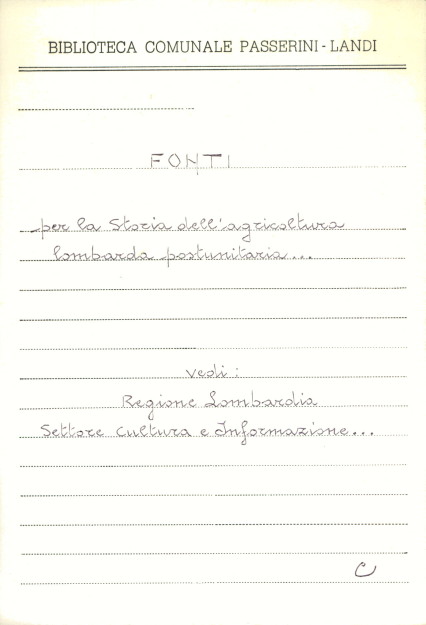 BIBLIOTECA COMUNALE PASSERINI - LANDI
FONTI
per la Storia dell'agricoltura
lombarda postunitaria...
vedi:
Regione Lombardia
Settore Cultura e Informazione...
C